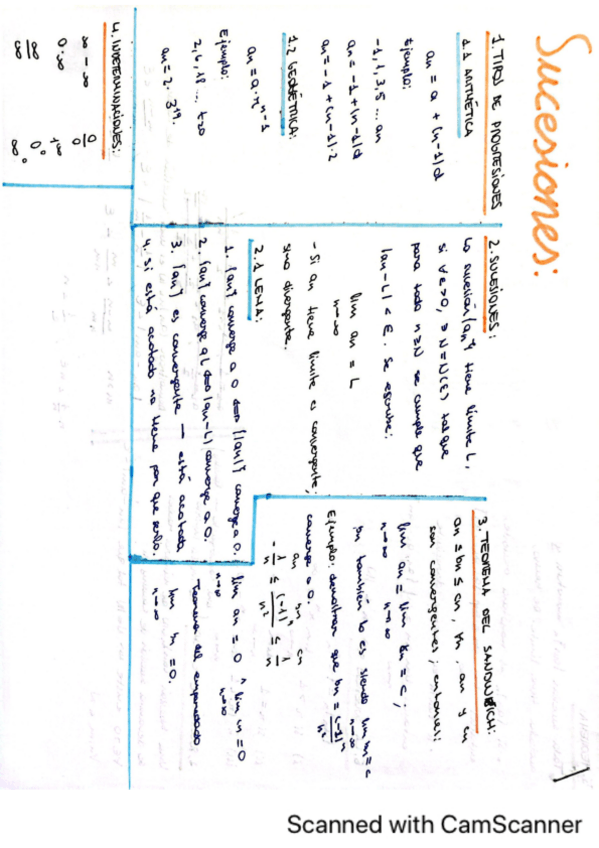 Sucesiones:
1. TIPOS DE PROGRESIONES
1.1 ARITMÉTICA
an = a + (n-1)d
Ejemplo:
-1, 1, 3, 5 ... an
an = -1 + (n-1)d
an = -1 + (n-1)·2
1.2 GEOMÉTRICA:
an = a·r^n-1
Ejemplo:
2, 6, 18 ...
an = 2·3^19
2. SUCESIONES:
La sucesión {an} tiene límite L,
si ∀ε>0, ∃ N = N(ε) tal que
para todo n≥N se cumple que
|an-L| < ε. Se escribe:
lim an = L
n→∞
- Si an tiene límite es convergente;
sino divergente.
2.1 LEMA:
1. {an} converge a 0 ⟺ {|an|} converge a 0.
2. {an} converge a L ⟺ |an-L| converge a 0.
3. {an} es convergente → está acotada
4. Si está acotada no tiene por que serlo.
3. TEOREMA DEL SANDWICH:
an ≤ bn ≤ cn, ∀n, an y cn
son convergentes, entonces:
lim an = lim cn = c;
n→∞ n→∞
bn también lo es siendo lim bn = c
n→∞
Ejemplo: demostrar que bn = (-1)^n / n²
converge a 0.
an bn cn
-1/n ≤ (-1)^n/n² ≤ 1/n
lim an = 0 ∧ lim cn = 0
n→∞ n→∞
Teorema del emparedado
lim bn = 0.
n→∞
4. INDETERMINACIONES:
∞ - ∞ 0/0
0·∞ 1^±∞
∞/∞ 0^0 ∞^0
Scanned with CamScanner